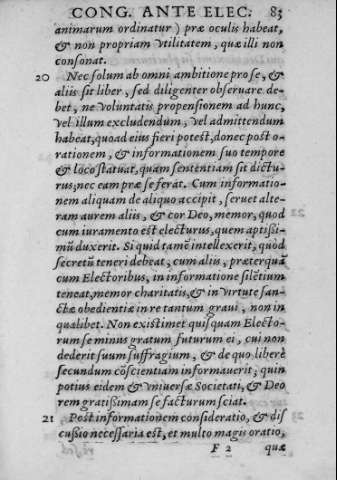 CONG. ANTE ELEC. 83
animarum ordinatur) præ oculis habeat,
& non propriam vtilitatem, quæ illi non
consonat.
20 Nec solum ab omni ambitione pro se, &
aliis sit liber, sed diligenter obseruare de-
bet, ne voluntatis propensionem ad hunc,
vel illum excludendum, vel admittendum
habeat, quoad eius fieri potest, donec post o-
rationem, & informationem suo tempore
& loco statuat, quam sententiam sit dictu-
rus; nec eam præ se ferat. Cum informatio-
nem aliquam de aliquo accipit, seruet alte-
ram aurem aliis, & cor Deo, memor, quod
cum iuramento est electurus, quem aptissi-
mū duxerit. Si quid tamē intellexerit, quòd
secretū teneri debeat, cum aliis, præterquā
cum Electoribus, in informatione silētium
teneat, memor charitatis, & in virtute san-
ctæ obedientiæ in re tantum graui, non in
qualibet. Non existimet quisquam Electo-
rum se minus gratum futurum ei, cui non
dederit suum suffragium, & de quo liberè
secundum cōscientiam informauerit; quin
potius eidem & vniuersæ Societati, & Deo
rem gratissimam se facturum sciat.
21 Post informationem consideratio, & dis
cussio necessaria est, et multo magis oratio,
F 2 quæ